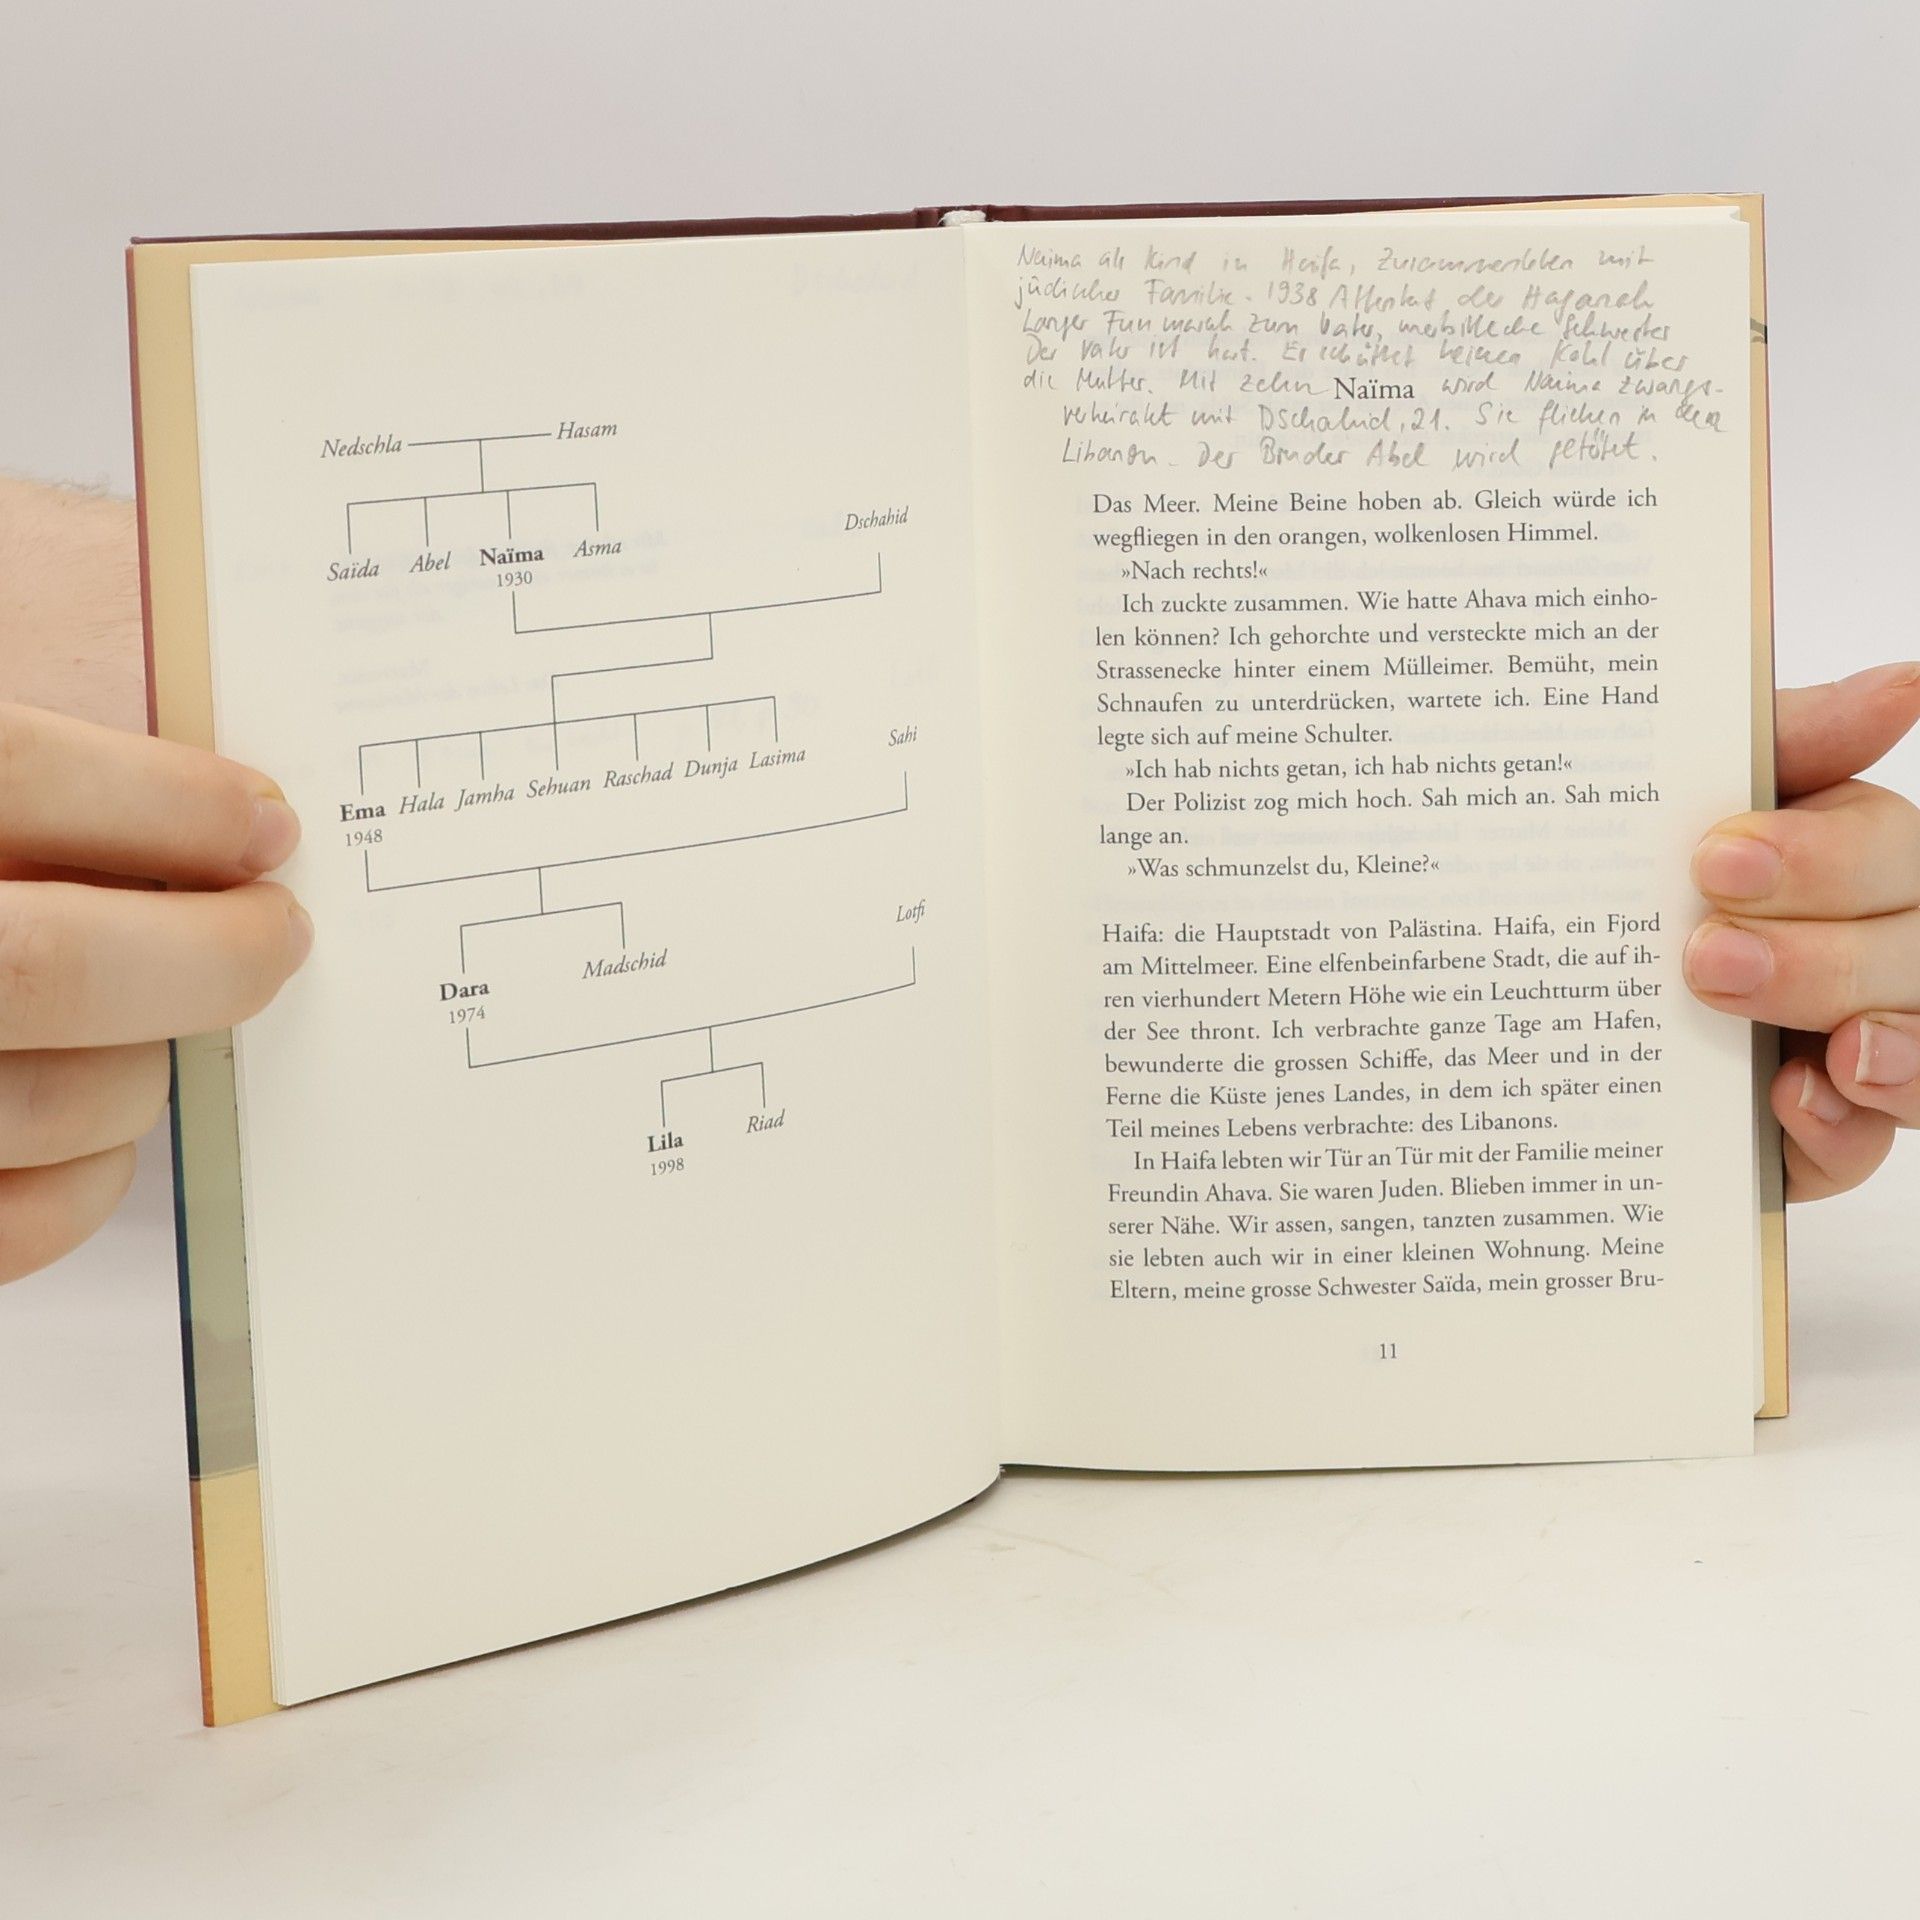 Nedschla
Hasam
Saïda Abel Naïma Asma
1930
Dschahid
Ema Hala Jamha Sehuan Raschad Dunja Lasima
1948
Sahi
Dara Madschid
1974
Lotfi
Lila Riad
1998
Naima als Kind in Haifa, Zusammenleben mit
jüdischer Familie. 1938 Attentat der Haganah
Langer Fussmarsch zum Vater, Schwester
Der Vater ist hart. Er schüttet heissen Kohl über
die Mutter. Mit zehn wird Naima zwangs-
verheiratet mit Dschahid, 21. Sie fliehen in den
Libanon. Der Bruder Abel wird getötet.
Naïma
Das Meer. Meine Beine hoben ab. Gleich würde ich
wegfliegen in den orangen, wolkenlosen Himmel.
»Nach rechts!«
Ich zuckte zusammen. Wie hatte Ahava mich einho-
len können? Ich gehorchte und versteckte mich an der
Strassenecke hinter einem Mülleimer. Bemüht, mein
Schnaufen zu unterdrücken, wartete ich. Eine Hand
legte sich auf meine Schulter.
»Ich hab nichts getan, ich hab nichts getan!«
Der Polizist zog mich hoch. Sah mich an. Sah mich
lange an.
»Was schmunzelst du, Kleine?«
Haifa: die Hauptstadt von Palästina. Haifa, ein Fjord
am Mittelmeer. Eine elfenbeinfarbene Stadt, die auf ih-
ren vierhundert Metern Höhe wie ein Leuchtturm über
der See thront. Ich verbrachte ganze Tage am Hafen,
bewunderte die grossen Schiffe, das Meer und in der
Ferne die Küste jenes Landes, in dem ich später einen
Teil meines Lebens verbrachte: des Libanons.
In Haifa lebten wir Tür an Tür mit der Familie meiner
Freundin Ahava. Sie waren Juden. Blieben immer in un-
serer Nähe. Wir assen, sangen, tanzten zusammen. Wie
sie lebten auch wir in einer kleinen Wohnung. Meine
Eltern, meine grosse Schwester Saïda, mein grosser Bru-
11